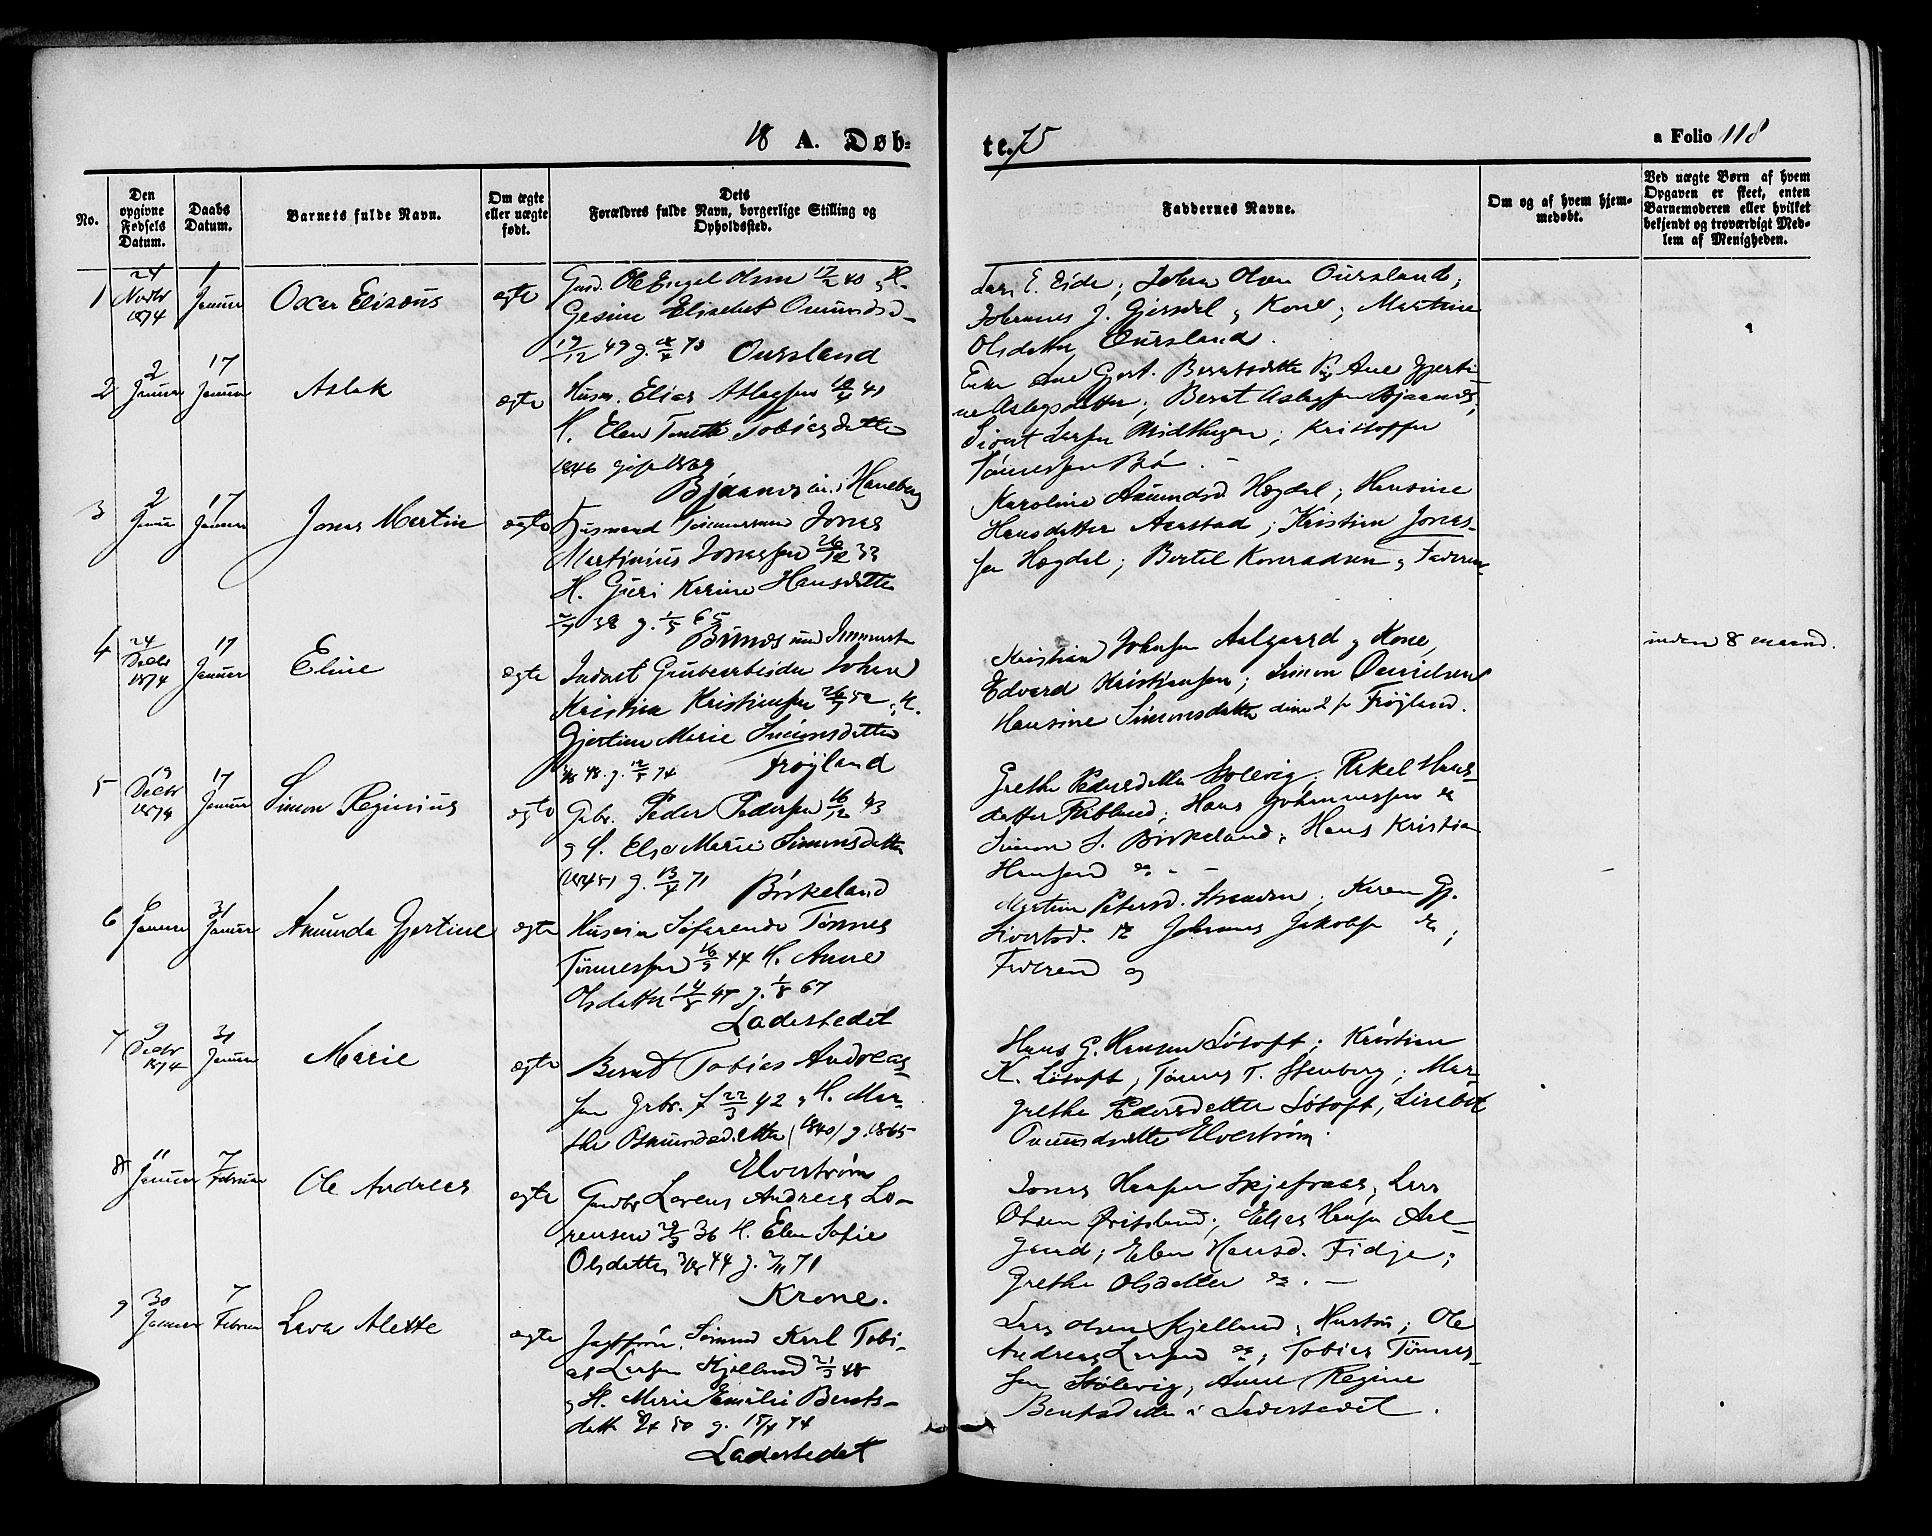 18 A. Døb-
te. 75
a Folio 118
No.
Den opgivne Fødsels Datum.
Daabs Datum.
Barnets fulde Navn.
Om ægte eller uægte født.
Dets Forældres fulde Navn, borgerlige Stilling og Opholdssted.
Faddernes Navne.
Om og af hvem hjemmedøbt.
Ved uægte Børn af hvem Opgaven er skeet, enten Barnemoderen eller hvilket bekjendt og troværdigt Medlem af Menigheden.
1
24 Novbr 1874
1 Januar
Oscar Elisæus
ægte
Ole Engel Olsen 12/2 40 & H.
Gesine Elisabet
19/12 49 g. 73 Oursland
Lars E. Eide; Johan Olsen Oursland;
Johannes J. Gjersdal & Kone; Martine
Olsdatter Oursland.
2
2 Januar
17 Januar
Aslak
ægte
Husm. Elias Atlagsen 41
H. Elen Tonette Tobiasdatter
1846 gift 1869
Bjaanes i Haneberg
Enke Ane Gjert. Berntsdatter Pig Ane Gjerti-
ne Aslagsdatter; Bernt Aslagsen Bjaanes;
Sivert Larsen Midthugen; Kristoffer
Tønnessen Bø.
3
2 Januar
17 Januar
Jonas Martin
ægte
Husmand Tømmermand Jonas
Martinius Jonassen 26/12 33
H. Guri Karine Hansdatter
38 g. 1/5 65
Karoline Amundsd Hægdal; Hansine
Hansdatter Aarstad; Kristian Jonas-
sen Hægdal; Bertel Konradsen & Faderen
4
24 Decbr 1874
17 Januar
Eline
ægte
Inderst Grubearbeider Johan
Kristian Kristiansen 52 & H.
Gjertine Marie Simonsdatter
48. g. 12/5 74 Frøyland
Kristian Johnsen Aalgaard & Kone,
Edvard Kristiansen; Simon
Hansine Simonsdatter Frøjland.
inden 8 maand.
5
19 Decbr 1874
17 Januar
Simon Reginius
ægte
Grbr. Peder Pedersen 16/12 43
& H. Elsa Marie Simonsdatter
g. 13/4 71 Birkeland
Grethe Pedersdatter Stølevig; Rakel Hans-
datter; Hans Johannessen
Simon S. Birkeland; Hans Kristian
Hansen
6
6 Januar
31 Januar
Amunda Gjertine
ægte
Søfarende Tønnes
Tønnessen 16/9 44 H. Anne
Olsdatter 47 g. 1/8 67
Ladestedet
Martin Petersd. Karen Gj.
Sivertsd. Johannes Jakobs
Faderen
7
9 Decbr 1874
31 Januar
Marie
ægte
Bernt Tobias Andreas-
sen Grbr. f 22/3 42 & H. Mar-
the Osmundsdatter (1840) g. 1865
Elvestrøm
Hans G. Hansen Løtoft; Kristian
K. Løtoft, Tønnes T. Stenberg; Mar-
grethe Pedersdatter Løtoft, Lisebet
Elvestrøm.
8
11 Januar
7 Februar
Ole Andreas
ægte
Gaardbr Lorens Andreas Lo-
rensen 36 H. Elen Sofie
Olsdatter 44 g. 71
Krone.
Jonas Hansen Skjefraas, Lars
Olsen; Elias Hansen Aal-
gaard; Elen Hansd. Fidje;
Grethe Olsdatter
9
30 Januar
7 Februar
Lava Alette
ægte
Karl Tobi-
as Larsen Kjelland 48
& H. Marie Emilie Bents-
datt 50 g. 74
Ladestedet
Lars Olsen Kjelland & Hustru; Ole
Andreas Larsen; Tobias Tønnes-
sen Stølevig, Anne Regine
Bentsdatter i Ladestedet.